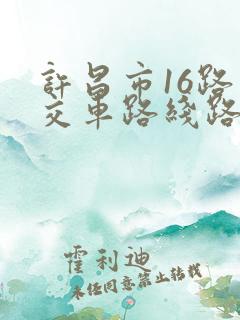 許昌市16路
交車路綫路
霍利迪
未经同意禁止转载